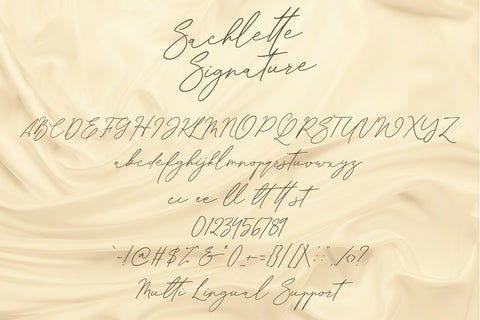 Sachlette
Signature
ABCDEFGHIJKLMNOPQRSTUVWXYZ
abcdefghijklmnopqrstuvwxyz
cc ee ll tt tt st
0123456789
`~!@#$%&*()_-+=[]{}|\:;",./<>?
Multi Lingual Support